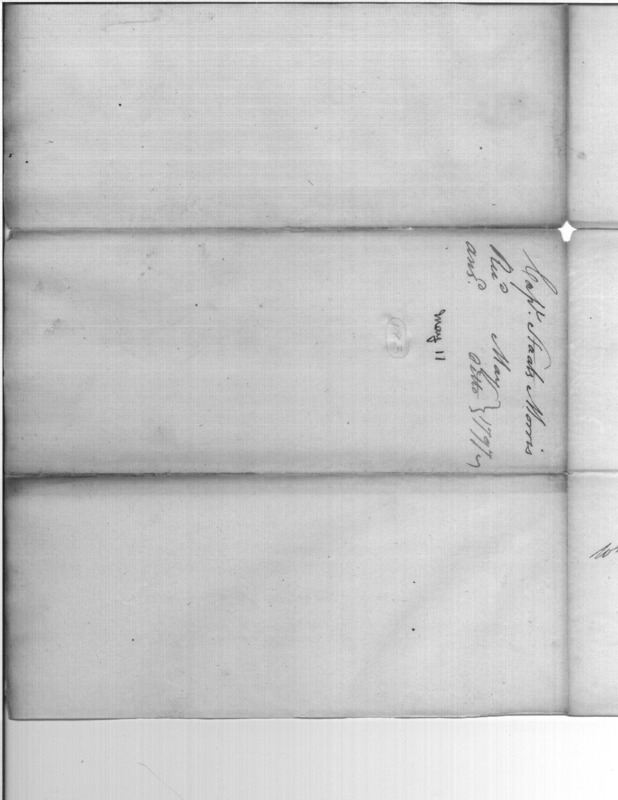 Capt. Staats Morris
Recd May } 1797
ansd. Ditto }
May 11